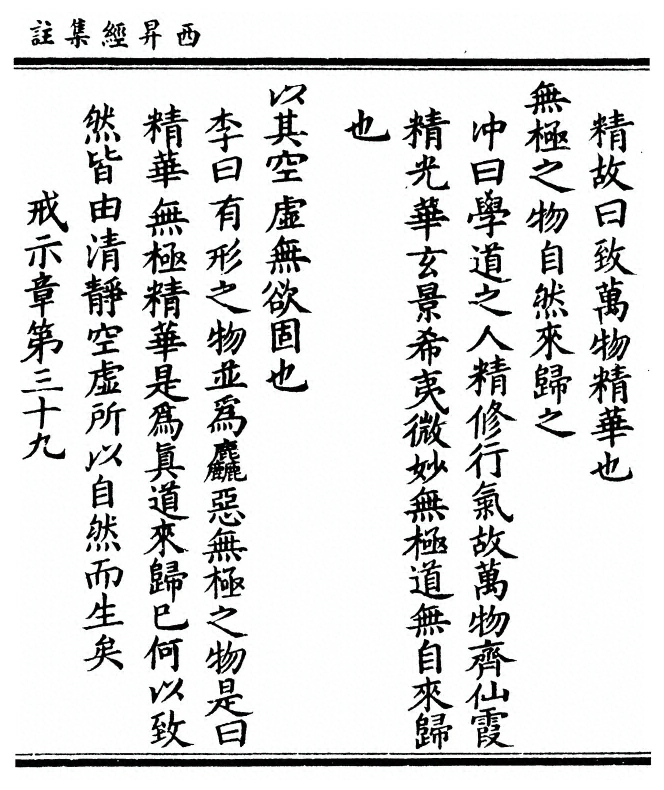 西昇經集註
精故曰致萬物精華也
無極之物自然來歸之
沖曰學道之人精修行氣故萬物齊仙霞
精光華玄景希夷微妙無極道無自來歸
也
以其空虛無欲固也
李曰有形之物並爲麤惡無極之物是曰
精華無極精華是爲眞道來歸已何以致
然皆由清靜空虛所以自然而生矣
戒示章第三十九